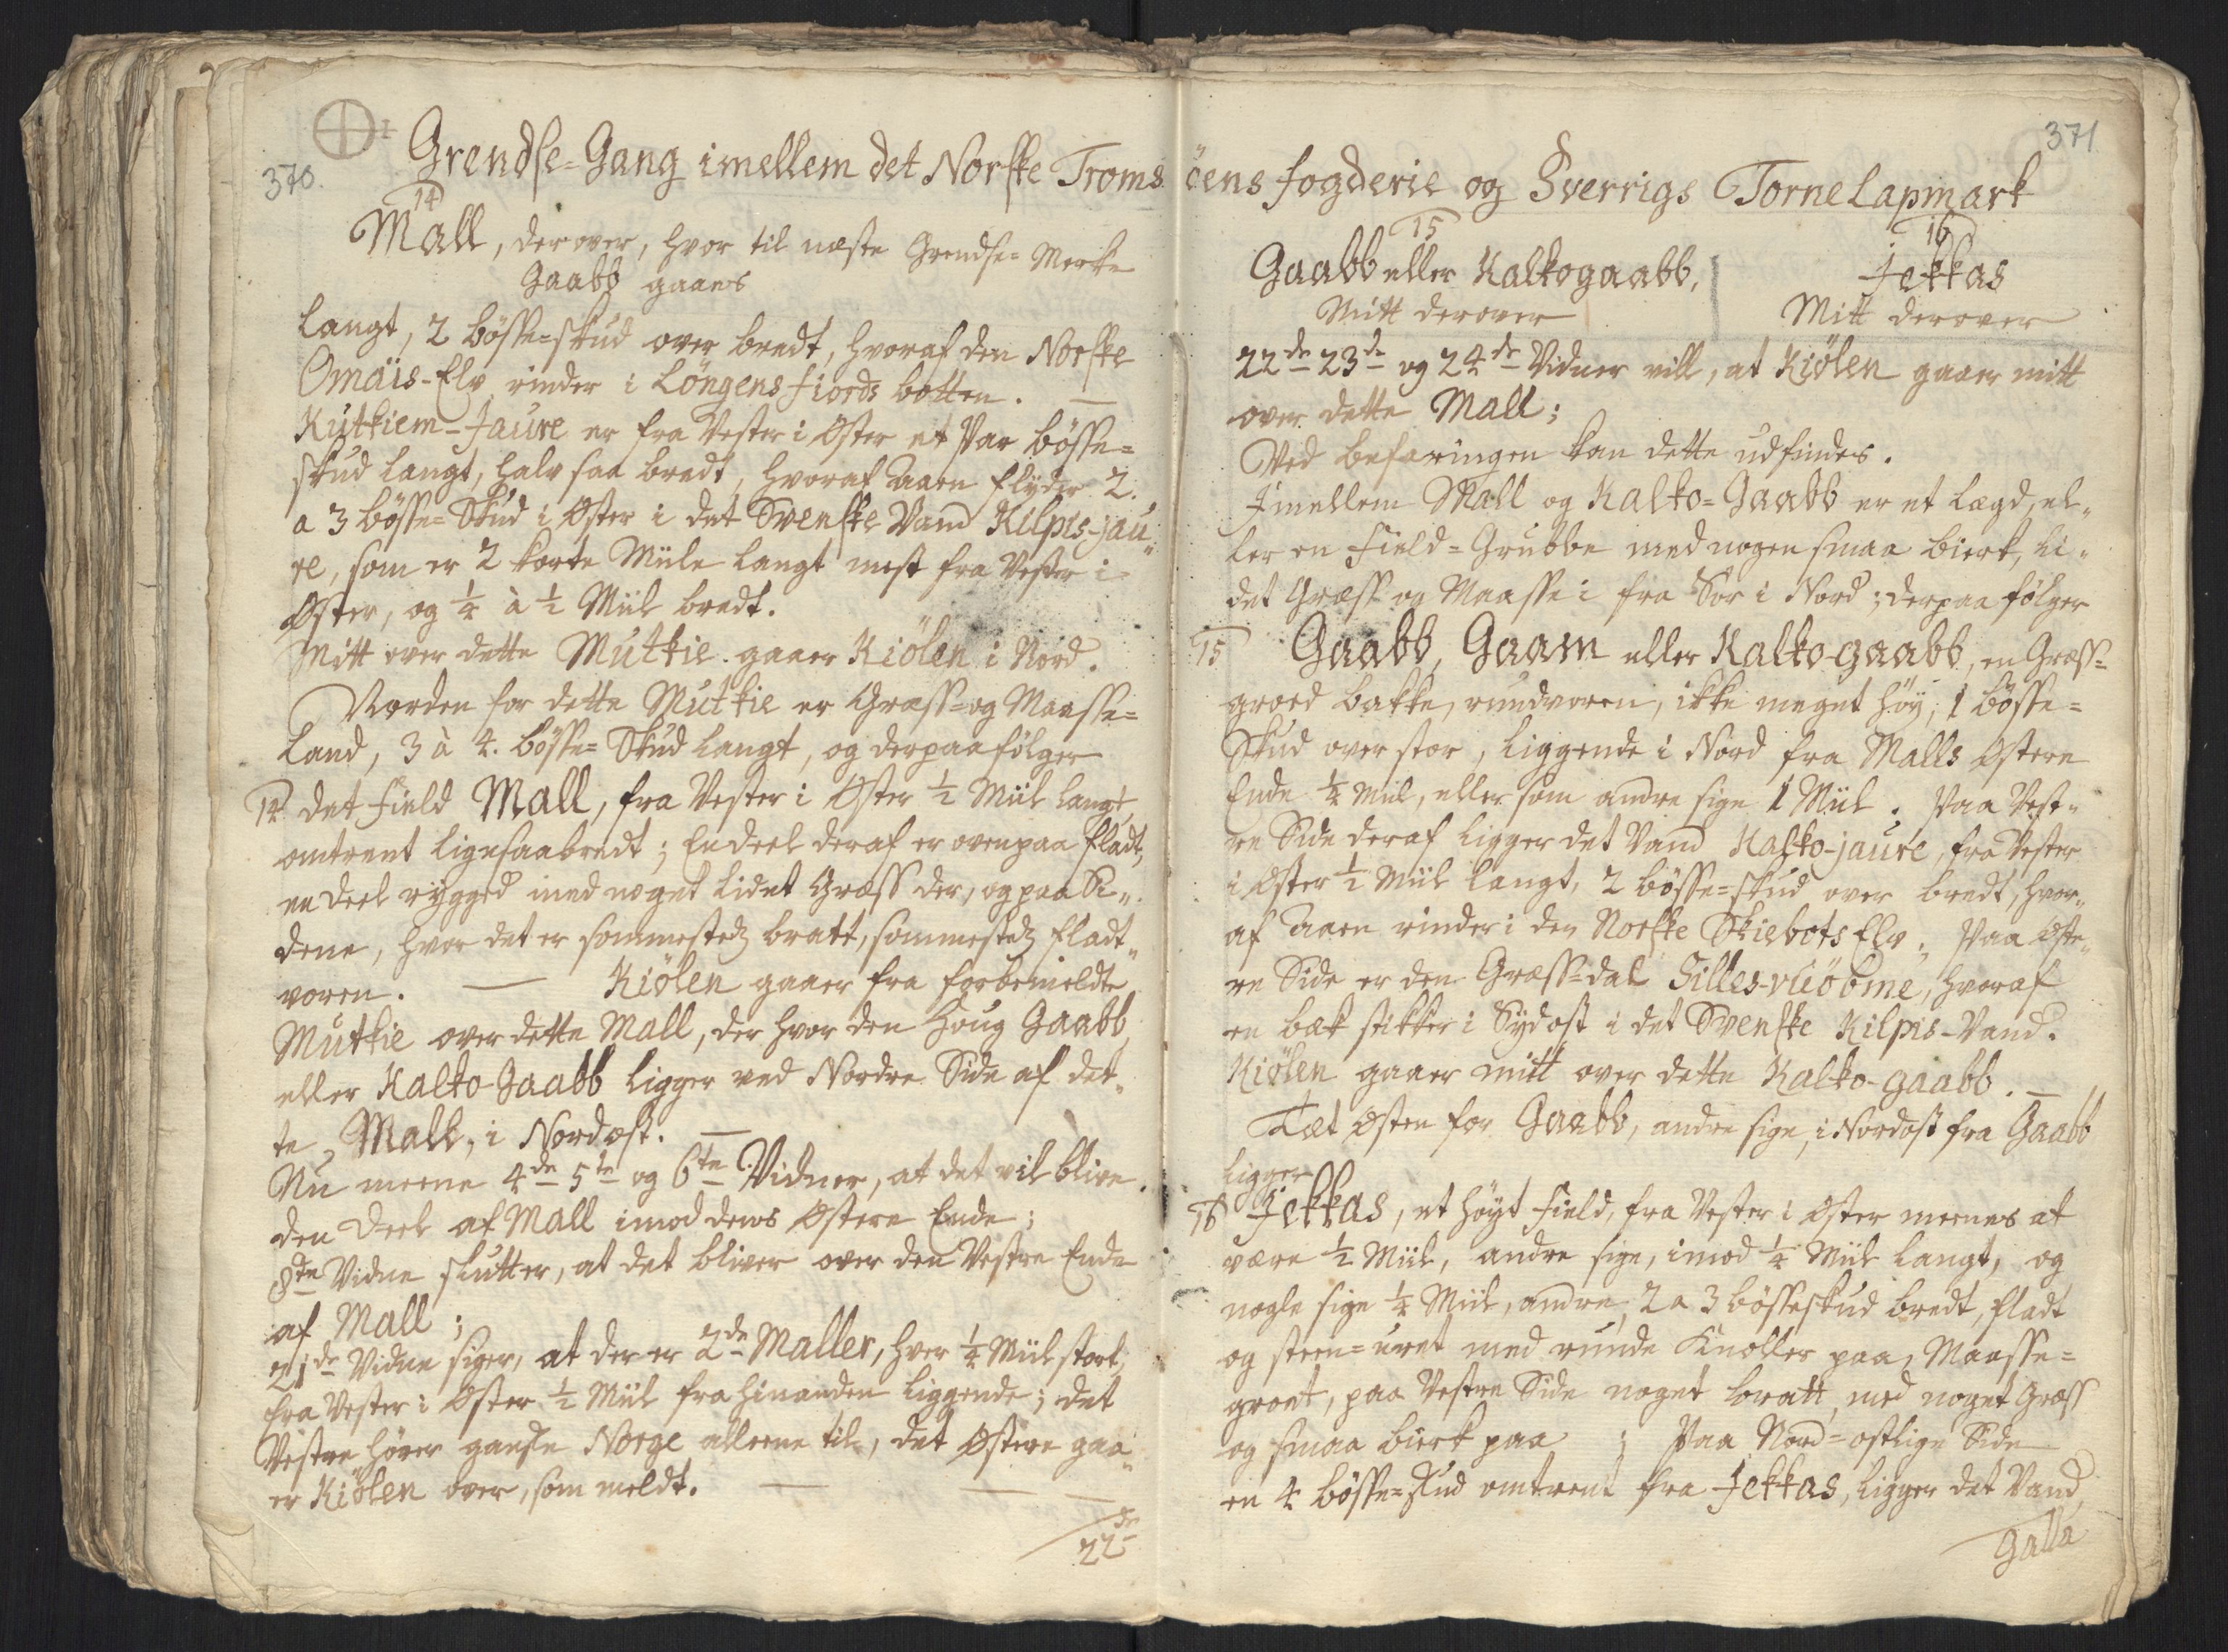 370.
Grendse-Gang imellem det Norske Troms
14
Mall, derover, hvor til næste Grendse-Merke
Gaabb gaaes
langt, 2 bösse-skud over bredt, hvoraf den Norske
Omäis-Elv rinder i Löngens fiords botten. —
Kutkiem-Jaure er fra Vester i Øster et Par bösse-
skud langt, halv saa bredt, hvoraf Aaen flyder 2.
a 3 bösse-Skud i Øster i det Svenske Vand Kilpis-jau„
re, som er 2 korte Miile langt mest fra Vester i
Øster, og ¼ à ½ Miil bredt.
Mitt over dette Mutkie gaaer Kiölen i Nord.
Norden for dette Mutkie er Græss- og Maasse-
Land, 3 à 4. bösse-Skud langt, og derpaa følger
14 det Field Mall, fra Vester i Øster ½ Miil langt,
omtrent ligesaabredt; Endeel deraf er ovenpaa fladt,
en deel rygged med noget lidet Græss der, og paa Si„
dene, hvor det er sommestedz bratt, sommestedz fladt„
voren. — Kiölen gaaer fra forbemeldte
Mutkie over dette Mall, der hvor den Houg Gaabb
eller Kalko-Gaabb ligger ved Nordre Side af det„
te Mall, i Nordost. —
Nu meene 4de 5te og 6te Vidner, at det vil blive
den Deel af Mall imod dens Østere Ende;
8de Vidne slutter, at det bliver over den Vestre Ende
af Mall;
21de Vidne siger, at der er 2de Maller, hver ¼ Miil stort,
fra Vester i Øster ½ Miil fra hinanden liggende; det
Vestre hører ganske Norge alleene til, det Østere gaa„
er Kiölen over, som meldt. — — —
22de
371
öens fogderie og Sverrigs Torne Lapmark
15
Gaabb eller Kalkogaabb,
Mitt derover
16
Jekkas
Mitt derover
22de 23de og 24de Vidner vill, at Kiölen gaaer mitt
over dette Mall;
Ved befaringen kan dette udfindes.
Imellem Mall og Kalko-Gaabb er et Lægd, el„
ler en Field-Grubbe med nogen smaa bierk, li„
det Græss og Maasse i fra Sør i Nord; derpaa følger
15 Gaabb, Gaam eller Kalko-gaabb, en Græss-
groed bakke, rundvoren, ikke meget høy, 1 bösse-
Skud over stor, liggende i Nord fra Malls Østere
Ende ¼ Miil, eller som andre sige 1 Miil. Paa Vest„
re Side deraf ligger det Vand Kalko-jaure, fra Vester
i Øster ½ Miil langt, 2 bösse-skud over bredt, hvor„
af Aaen rinder i den Norske Skiebots Elv; Paa Øste„
re Side er den Græss-dal Tilles-vuöbme, hvoraf
en bæk stikker i Sydost i det Svenske Kilpis-Vand.
Kiölen gaaer mitt over dette Kalko-gaabb. —
Tæt Østen for Gaabb, andre sige, i Nordost fra Gaabb
ligger
16 Jekkas, et høyt Field, fra Vester i Øster meenes at
være ½ Miil, andre sige, imod ¼ Miil langt, og
nogle sige ¼ Miil, andre, 2 a 3 bösseskud bredt, fladt
og steen-uret med runde Knoller paa, Maasse-
groet, paa Vestre Side noget bratt, med noget Græss
og smaa bierk paa; Paa Nord-ostlige Side
en 4 bösse-skud omtrent fra Jekkas, ligger det Vand
Galla